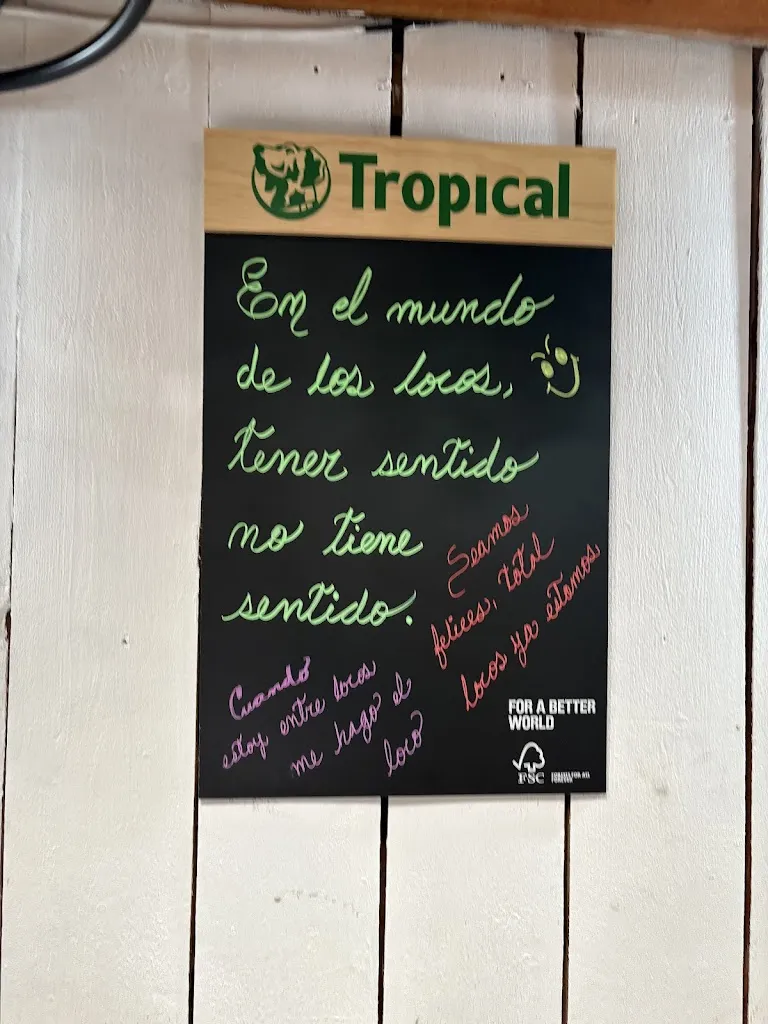 Tropical
En el mundo
de los locos,
tener sentido
no tiene
sentido.
Seamos
felices, total
locos ya estamos
Cuando
estoy entre locos
me hago el
loco
FOR A BETTER
WORLD
FSC
FORESTS FOR ALL
FOREVER